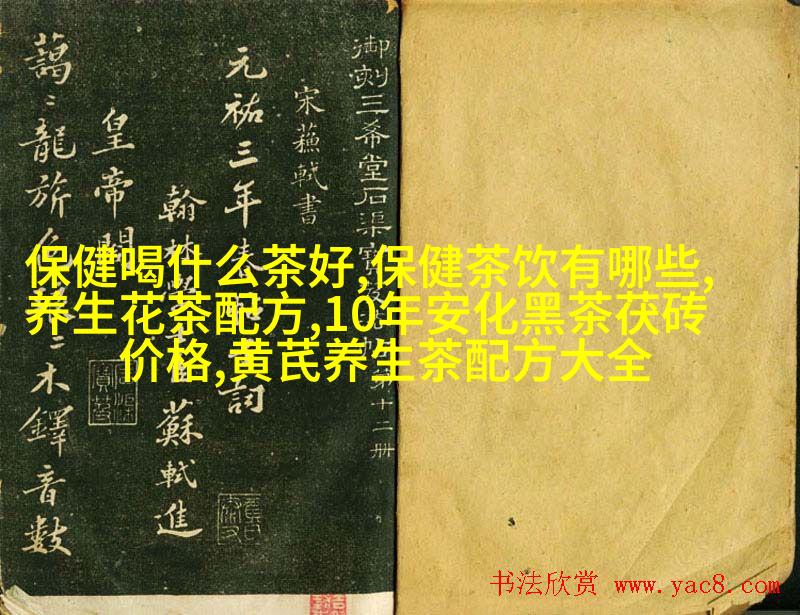 保健喝什么茶好,保健茶饮有哪些,
养生花茶配方,10年安化黑茶茯砖
价格,黄芪养生茶配方大全
御刻三希堂石渠寶 第十二册
宋蘇軾書
元祐三年春 詞
翰林 蘇軾進
皇帝閣
藹〻龍旂色 〻木鐸音數
书法欣赏 www.yac8.com